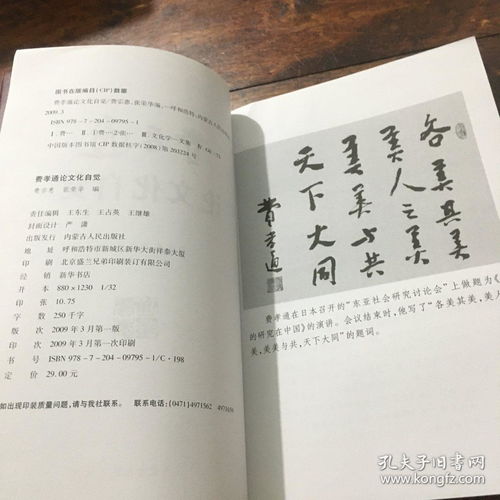 图书在版编目(CIP)数据
费孝通论文化自觉/费宗惠,张荣华编.—呼和浩特:内蒙古人民出版社,
2009.3
ISBN 978-7-204-09795-1
Ⅰ.费… Ⅱ.①费…②张… Ⅲ.文化学—文集 Ⅳ.G0-53
中国版本图书馆CIP数据核字(2008)第 号
费孝通论文化自觉
费宗惠 张荣华 编
责任编辑 王东生 王占英 王继雄
封面设计 严潇
出版发行 内蒙古人民出版社
地址 呼和浩特市新城区新华大街祥泰大厦
印刷 北京盛兰兄弟印刷装订有限公司
经销 新华书店
开本 880×1230 1/32
印张 10.75
字数 250千字
版次 2009年3月第一版
印次 2009年3月第一次印刷
书号 ISBN 978-7-204-09795-1/C·198
定价 29.00元
如出现印装质量问题,请与我社联系。 联系电话:(0471)4971562
各美其美
美人之美
美美与共
天下大同
费孝通
费孝通在日本召开的“东亚社会研究讨论会”上做题为《
的研究在中国》的演讲。会议结束时,他写了“各美其美,美人
美,美美与共,天下大同”的题词。
孔夫子旧书网
kongfz.com